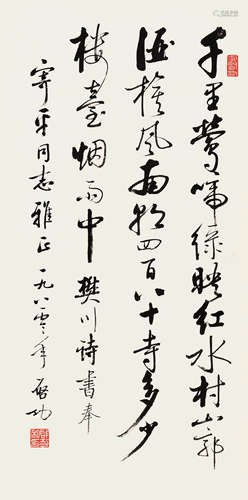 千里莺啼绿映红水村山郭
酒旗风南朝四百八十寺多少
楼台烟雨中 樊川诗书奉
寄平同志雅正 一九八零年 启功